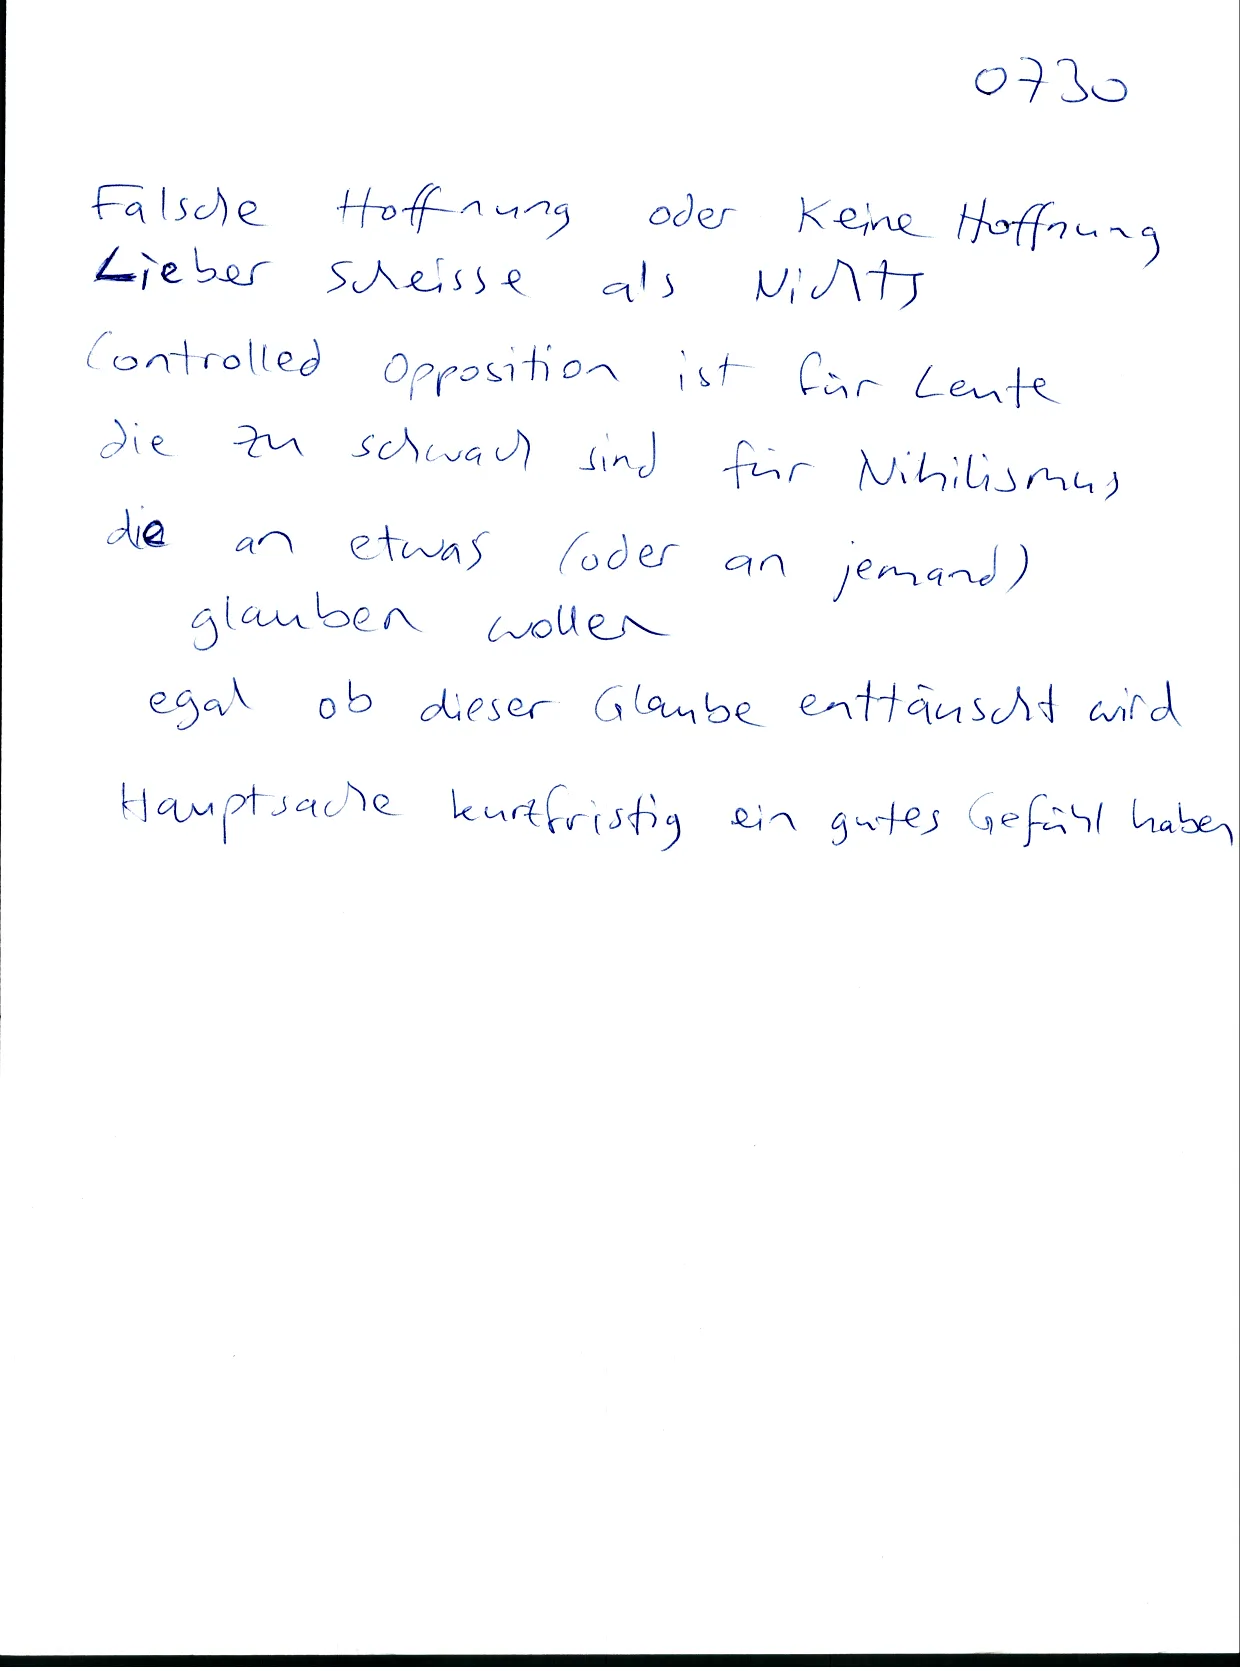 0730
Falsche Hoffnung oder Keine Hoffnung
Lieber Scheisse als Nichts
Controlled Opposition ist für Leute
die zu schwach sind für Nihilismus
die an etwas (oder an jemand)
glauben wollen
egal ob dieser Glaube enttäuscht wird
Hauptsache kurzfristig ein gutes Gefühl haben